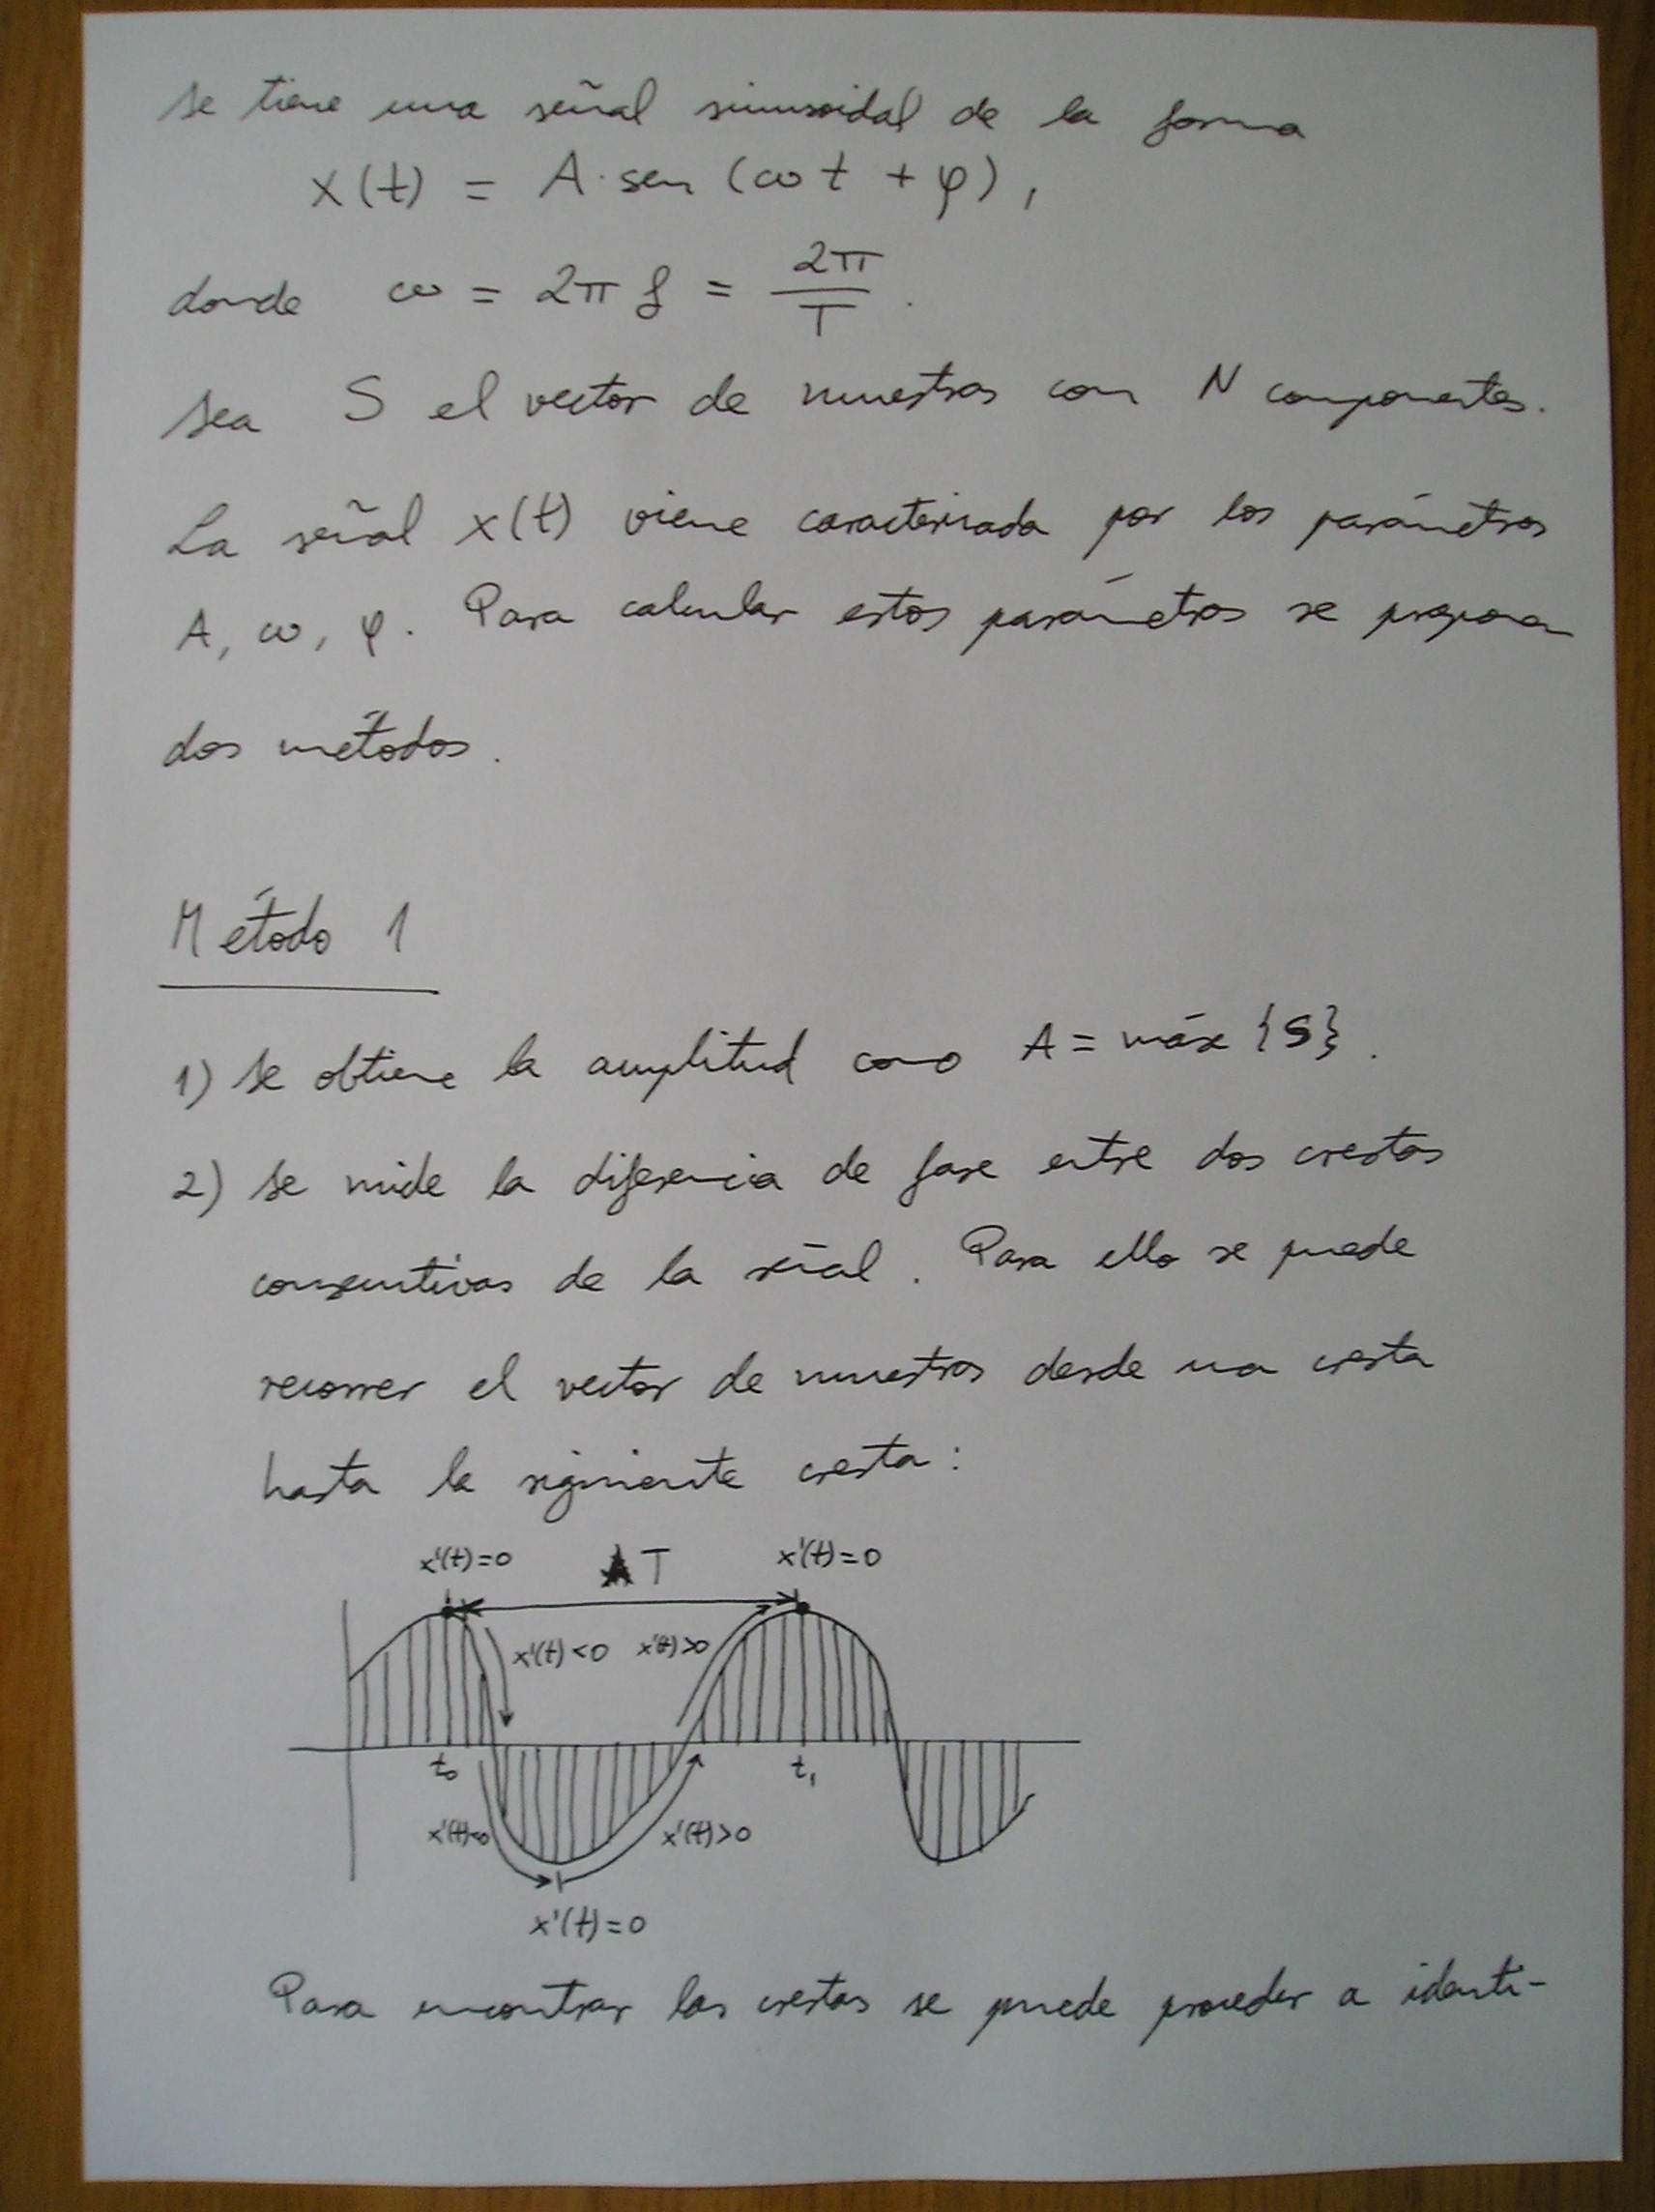 Se tiene una señal sinusoidal de la forma
x(t) = A·sen(ωt + φ),
donde ω = 2π f = 2π/T.
Sea S el vector de muestras con N componentes.
La señal x(t) viene caracterizada por los parámetros
A, ω, φ. Para calcular estos parámetros se proponen
dos métodos.
Método 1
1) Se obtiene la amplitud como A = máx {S}.
2) Se mide la diferencia de fase entre dos crestas
consecutivas de la señal. Para ello se puede
recorrer el vector de muestras desde una cresta
hasta la siguiente cresta:
x'(t)=0 T x'(t)=0
x'(t)<0 x'(t)>0
t₀ t₁
x'(t)<0 x'(t)>0
x'(t)=0
Para encontrar las crestas se puede proceder a identi-